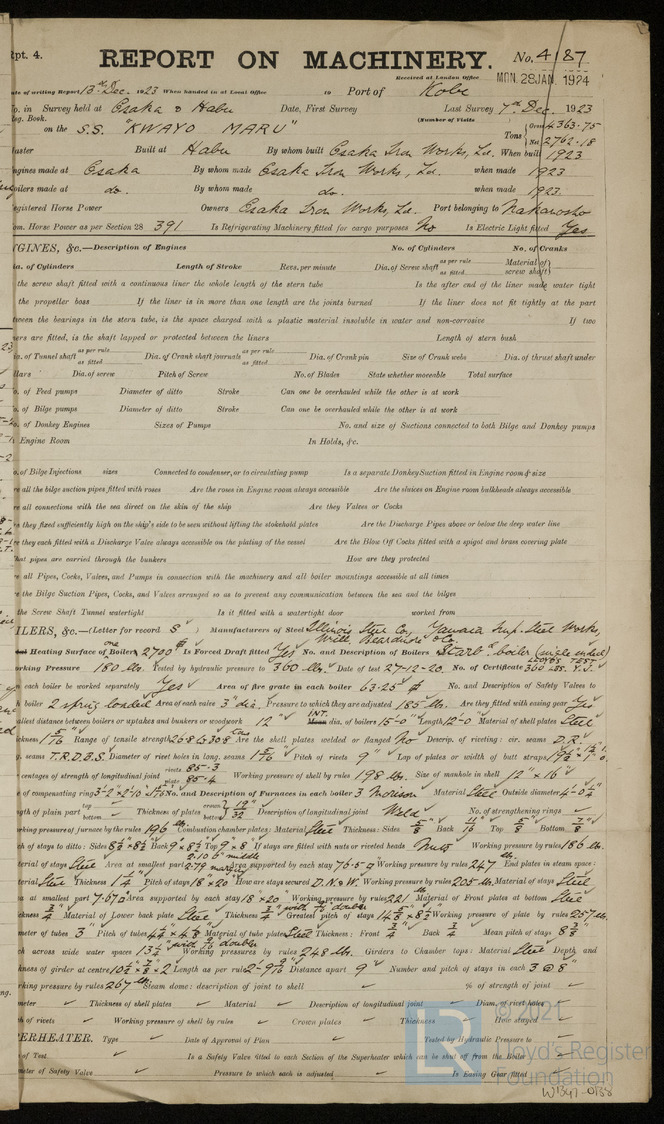 Rpt. 4.
REPORT ON MACHINERY.
No. 4187
Received at London Office
MON. 28 JAN. 1924
Date of writing Report 13th Dec. 1923 When handed in at Local Office 19 Port of Kobe
No. in Survey held at Osaka & Habu Date, First Survey Last Survey 7th Dec. 1923
Reg. Book. (Number of Visits
on the S.S. "KWAYO MARU" Tons { Gross 4363.75
Net 2762.18
Master Built at Habu By whom built Osaka Iron Works, Ld. When built 1923
Engines made at Osaka By whom made Osaka Iron Works, Ld. when made 1923
Boilers made at do. By whom made do. when made 1923
Registered Horse Power Owners Osaka Iron Works, Ld. Port belonging to Nakanosho
Nom. Horse Power as per Section 28 391 Is Refrigerating Machinery fitted for cargo purposes No Is Electric Light fitted Yes
ENGINES, &c.—Description of Engines No. of Cylinders No. of Cranks
Dia. of Cylinders Length of Stroke Revs. per minute Dia. of Screw shaft as per rule as fitted Material of screw shaft
the screw shaft fitted with a continuous liner the whole length of the stern tube Is the after end of the liner made water tight
the propeller boss If the liner is in more than one length are the joints burned If the liner does not fit tightly at the part
between the bearings in the stern tube, is the space charged with a plastic material insoluble in water and non-corrosive If two
liners are fitted, is the shaft lapped or protected between the liners Length of stern bush
Dia. of Tunnel shaft as per rule as fitted Dia. of Crank shaft journals as per rule as fitted Dia. of Crank pin Size of Crank webs Dia. of thrust shaft under
collars Dia. of screw Pitch of Screw No. of Blades State whether moveable Total surface
No. of Feed pumps Diameter of ditto Stroke Can one be overhauled while the other is at work
No. of Bilge pumps Diameter of ditto Stroke Can one be overhauled while the other is at work
No. of Donkey Engines Sizes of Pumps No. and size of Suctions connected to both Bilge and Donkey pumps
Engine Room In Holds, &c.
No. of Bilge Injections sizes Connected to condenser, or to circulating pump Is a separate Donkey Suction fitted in Engine room & size
Are all the bilge suction pipes fitted with roses Are the roses in Engine room always accessible Are the sluices on Engine room bulkheads always accessible
Are all connections with the sea direct on the skin of the ship Are they Valves or Cocks
Are they fixed sufficiently high on the ship's side to be seen without lifting the stokehold plates Are the Discharge Pipes above or below the deep water line
Are they each fitted with a Discharge Valve always accessible on the plating of the vessel Are the Blow Off Cocks fitted with a spigot and brass covering plate
What pipes are carried through the bunkers How are they protected
Are all Pipes, Cocks, Valves, and Pumps in connection with the machinery and all boiler mountings accessible at all times
Are the Bilge Suction Pipes, Cocks, and Valves arranged so as to prevent any communication between the sea and the bilges
Is the Screw Shaft Tunnel watertight Is it fitted with a watertight door worked from
BOILERS, &c.—(Letter for record S) Manufacturers of Steel Illinois Steel Co, Yawata Imp. Steel Works,
Will. Beardmore & Co.
Heating Surface of one Boiler 2700 Is Forced Draft fitted Yes No. and Description of Boilers Starb'd boiler (single ended)
Working Pressure 180 lbs. Tested by hydraulic pressure to 360 lbs. Date of test 27-12-20. No. of Certificate LLOYD'S TEST 360 LBS. Y.J.
Can each boiler be worked separately Yes Area of fire grate in each boiler 63.25 No. and Description of Safety Valves to
each boiler 2 spring loaded Area of each valve 3" dia. Pressure to which they are adjusted 185 lbs. Are they fitted with easing gear Yes
Smallest distance between boilers or uptakes and bunkers or woodwork 12" INT. dia. of boilers 15'-0" Length 12'-0 Material of shell plates Steel
Thickness 1 5/16 Range of tensile strength 26.8 to 30.8 tons Are the shell plates welded or flanged No Descrip. of riveting: cir. seams D.R.
long. seams T.R.D.B.S. Diameter of rivet holes in long. seams 1 5/16 Pitch of rivets 9" Lap of plates or width of butt straps
Percentages of strength of longitudinal joint rivets 85.3 plate 85.4 Working pressure of shell by rules 198 lbs. Size of manhole in shell 12" x 16"
Size of compensating ring No. and Description of Furnaces in each boiler 3 Morison Material Steel Outside diameter
Length of plain part top bottom Thickness of plates crown bottom 19/32 Description of longitudinal joint Weld No. of strengthening rings
Working pressure of furnace by the rules 196 Combustion chamber plates: Material Steel Thickness: Sides 5/8 Back 11/16 Top 5/8 Bottom 7/8
Pitch of stays to ditto: Sides 8 3/4 x 8 1/2 Back 9 x 8 1/2 Top 9 x 8 If stays are fitted with nuts or riveted heads Nuts Working pressure by rules 186 lbs.
Material of stays Steel Area at smallest part 2.10 & middle 2.79 margin Area supported by each stay 76.5 Working pressure by rules 247 lbs. End plates in steam space:
Material Steel Thickness 1 1/4 Pitch of stays 18" x 20" How are stays secured D.N.&W. Working pressure by rules 205 lbs. Material of stays Steel
Area at smallest part 7.67 Area supported by each stay 18" x 20" Working pressure by rules 221 lbs Material of Front plates at bottom Steel
Thickness 3/4 Material of Lower back plate Steel Thickness 3/4 with double Greatest pitch of stays 14 5/8 x 8 1/2 Working pressure of plate by rules 257 lbs.
Diameter of tubes 3" Pitch of tubes Material of tube plates Steel Thickness: Front 3/4 Back 3/4 Mean pitch of stays 8 5/8
Pitch across wide water spaces 13 3/4 with double Working pressures by rules 248 lbs. Girders to Chamber tops: Material Steel Depth and
thickness of girder at centre 10 1/2 x 7/8 x 2 Length as per rule Distance apart 9" Number and pitch of stays in each 3 @ 8"
Working pressure by rules 267 lbs Steam dome: description of joint to shell % of strength of joint
Diameter Thickness of shell plates Material Description of longitudinal joint Diam. of rivet holes
Pitch of rivets Working pressure of shell by rules Crown plates Thickness How stayed
SUPERHEATER. Type Date of Approval of Plan Tested by Hydraulic Pressure to
Date of Test Is a Safety Valve fitted to each Section of the Superheater which can be shut off from the Boiler
Diameter of Safety Valve Pressure to which each is adjusted Is Easing Gear fitted
© 2021
Lloyd's Register
Foundation
W1347-0138